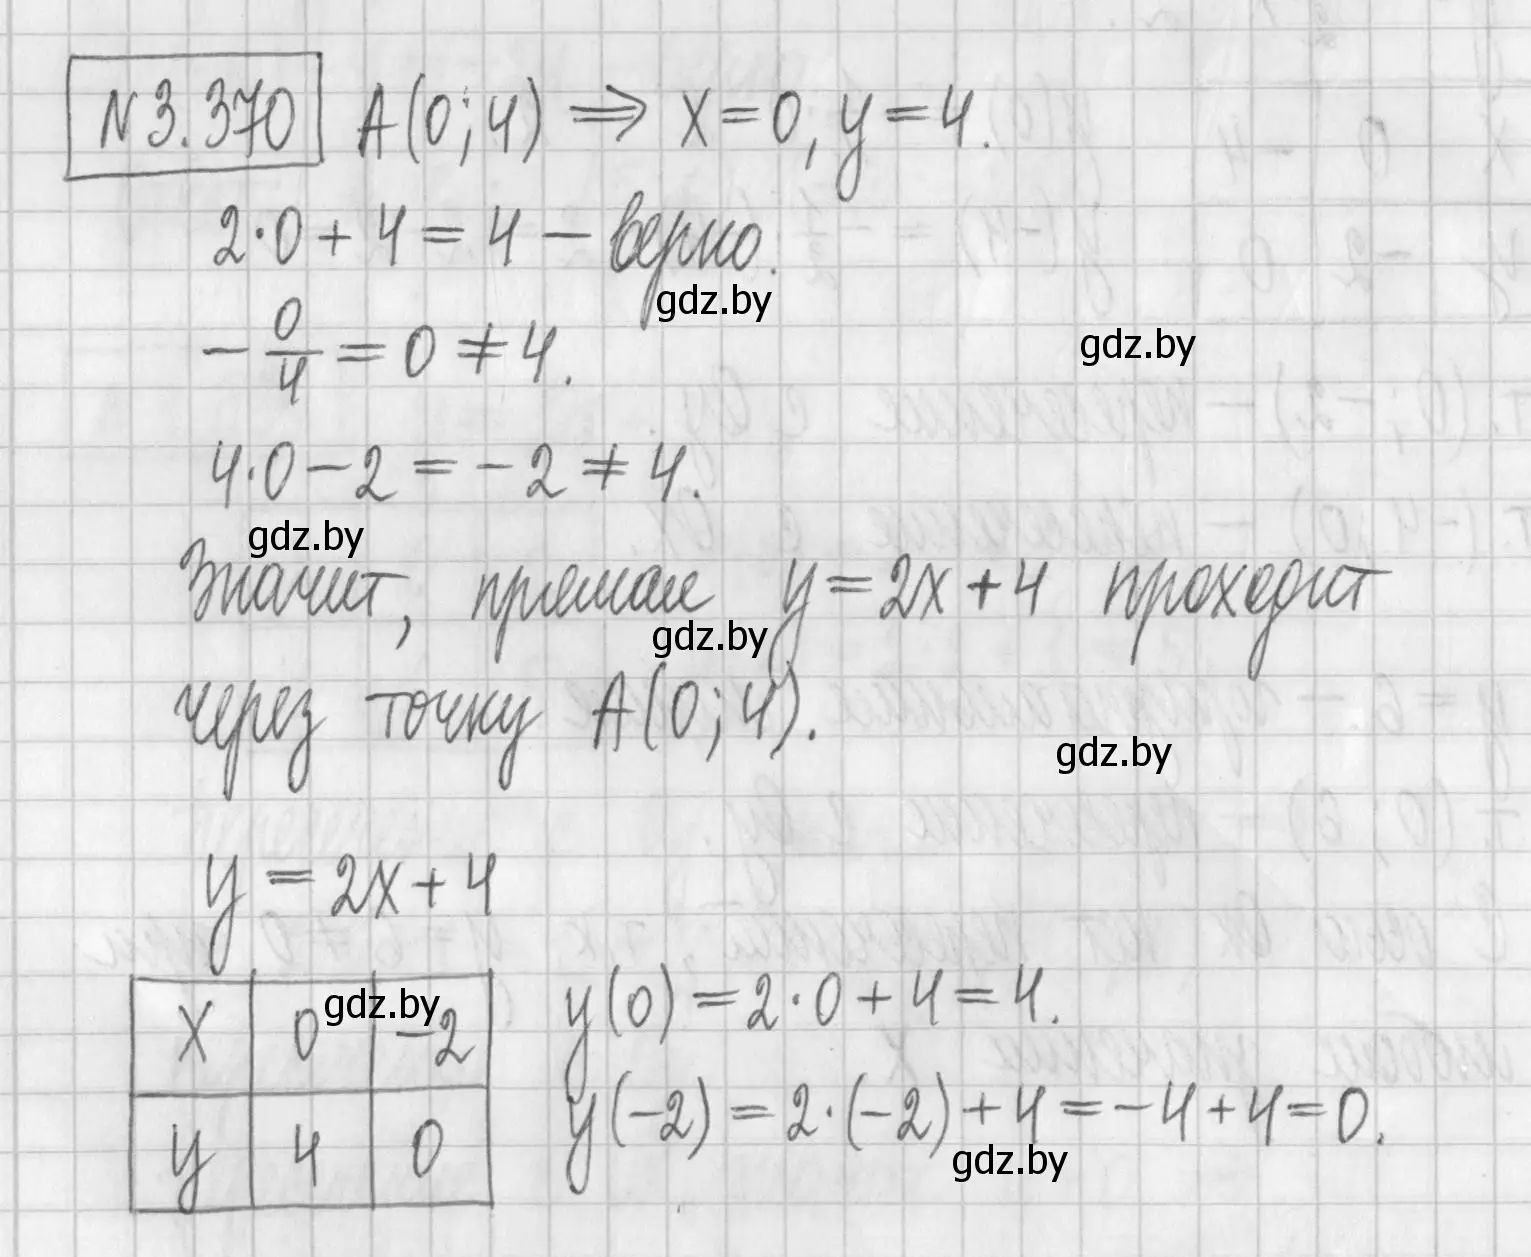 №3.370 A(0;4) ⇒ x=0, y=4.
2·0+4=4 – верно.
gdz.by
-0/4=0≠4.
gdz.by
4·0-2=-2≠4.
gdz.by
Значит, прямая y=2x+4 проходит
gdz.by
через точку A(0;4).
gdz.by
y=2x+4
x 0 -2
y 4 0
gdz.by
y(0)=2·0+4=4.
y(-2)=2·(-2)+4=-4+4=0.
gdz.by